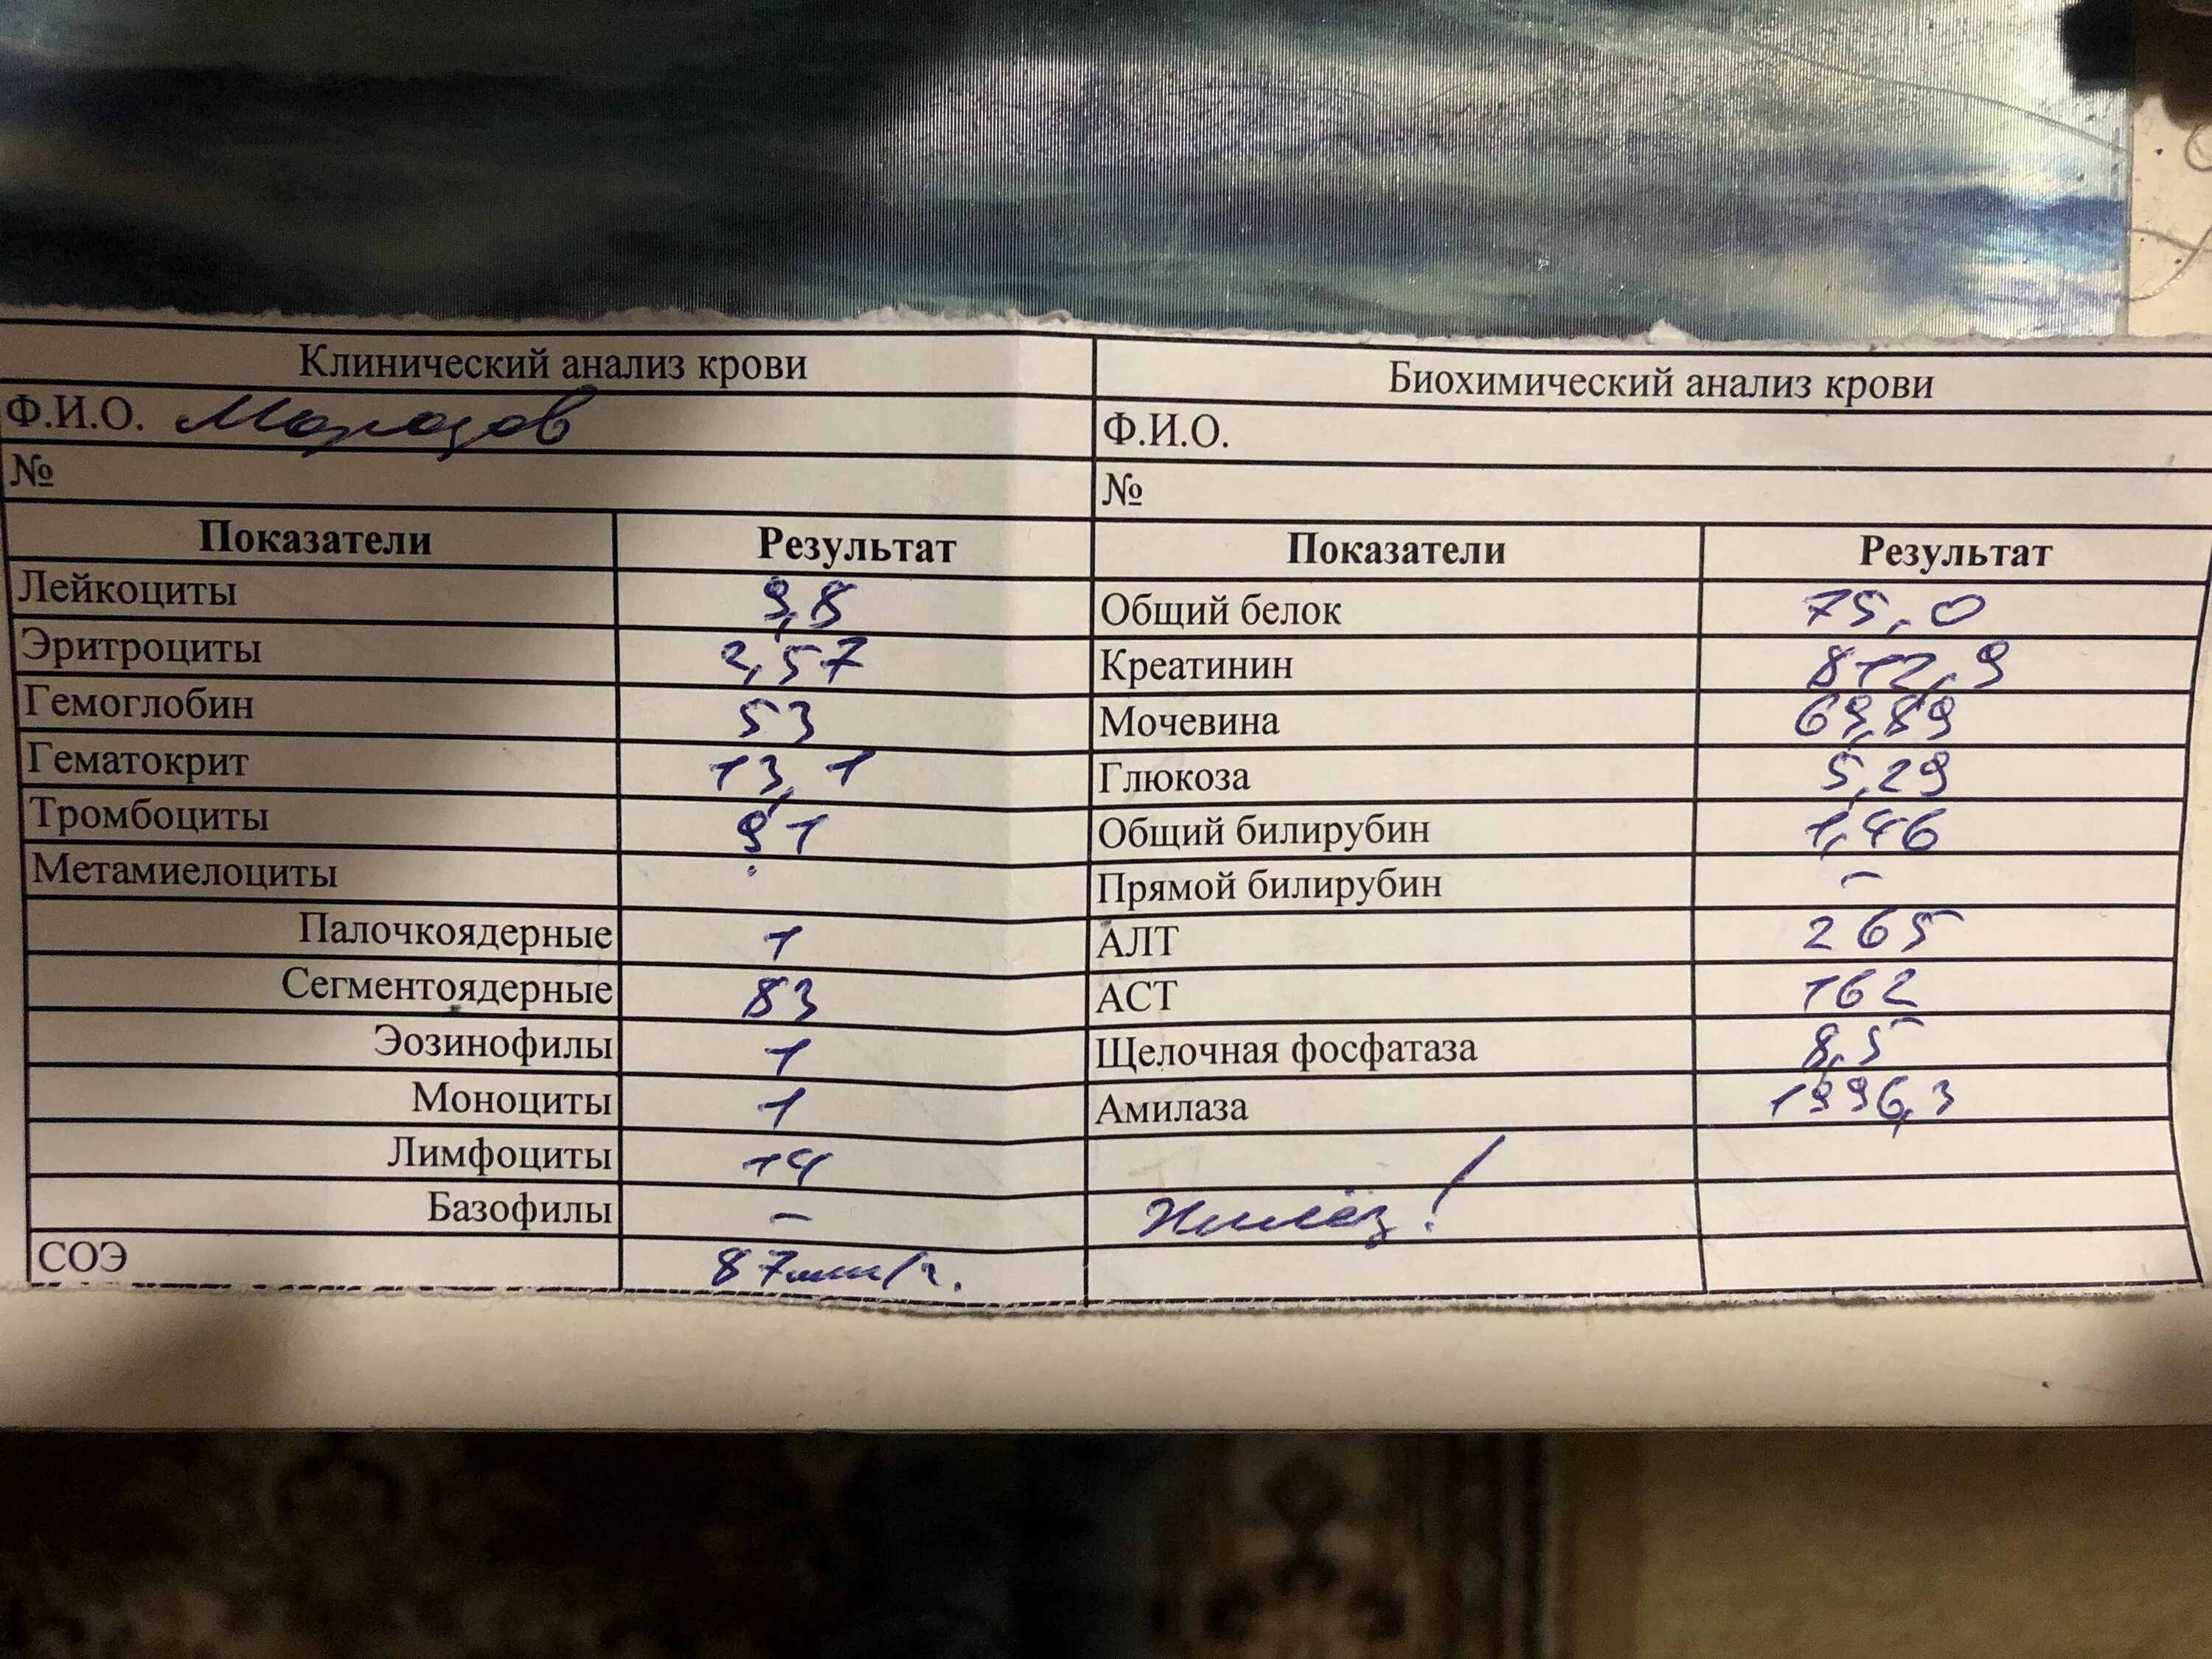 Клинический анализ крови Биохимический анализ крови
Ф.И.О. Морозов Ф.И.О.
№ №
Показатели Результат Показатели Результат
Лейкоциты 9,8 Общий белок 75,0
Эритроциты 2,57 Креатинин 812,9
Гемоглобин 53 Мочевина 69,89
Гематокрит 13,1 Глюкоза 5,29
Тромбоциты 91 Общий билирубин 1,46
Метамиелоциты Прямой билирубин –
Палочкоядерные 1 АЛТ 265
Сегментоядерные 83 АСТ 162
Эозинофилы 1 Щелочная фосфатаза 8,5
Моноциты 1 Амилаза 1996,3
Лимфоциты 14
Базофилы – Хилёз!
СОЭ 87мм/ч.